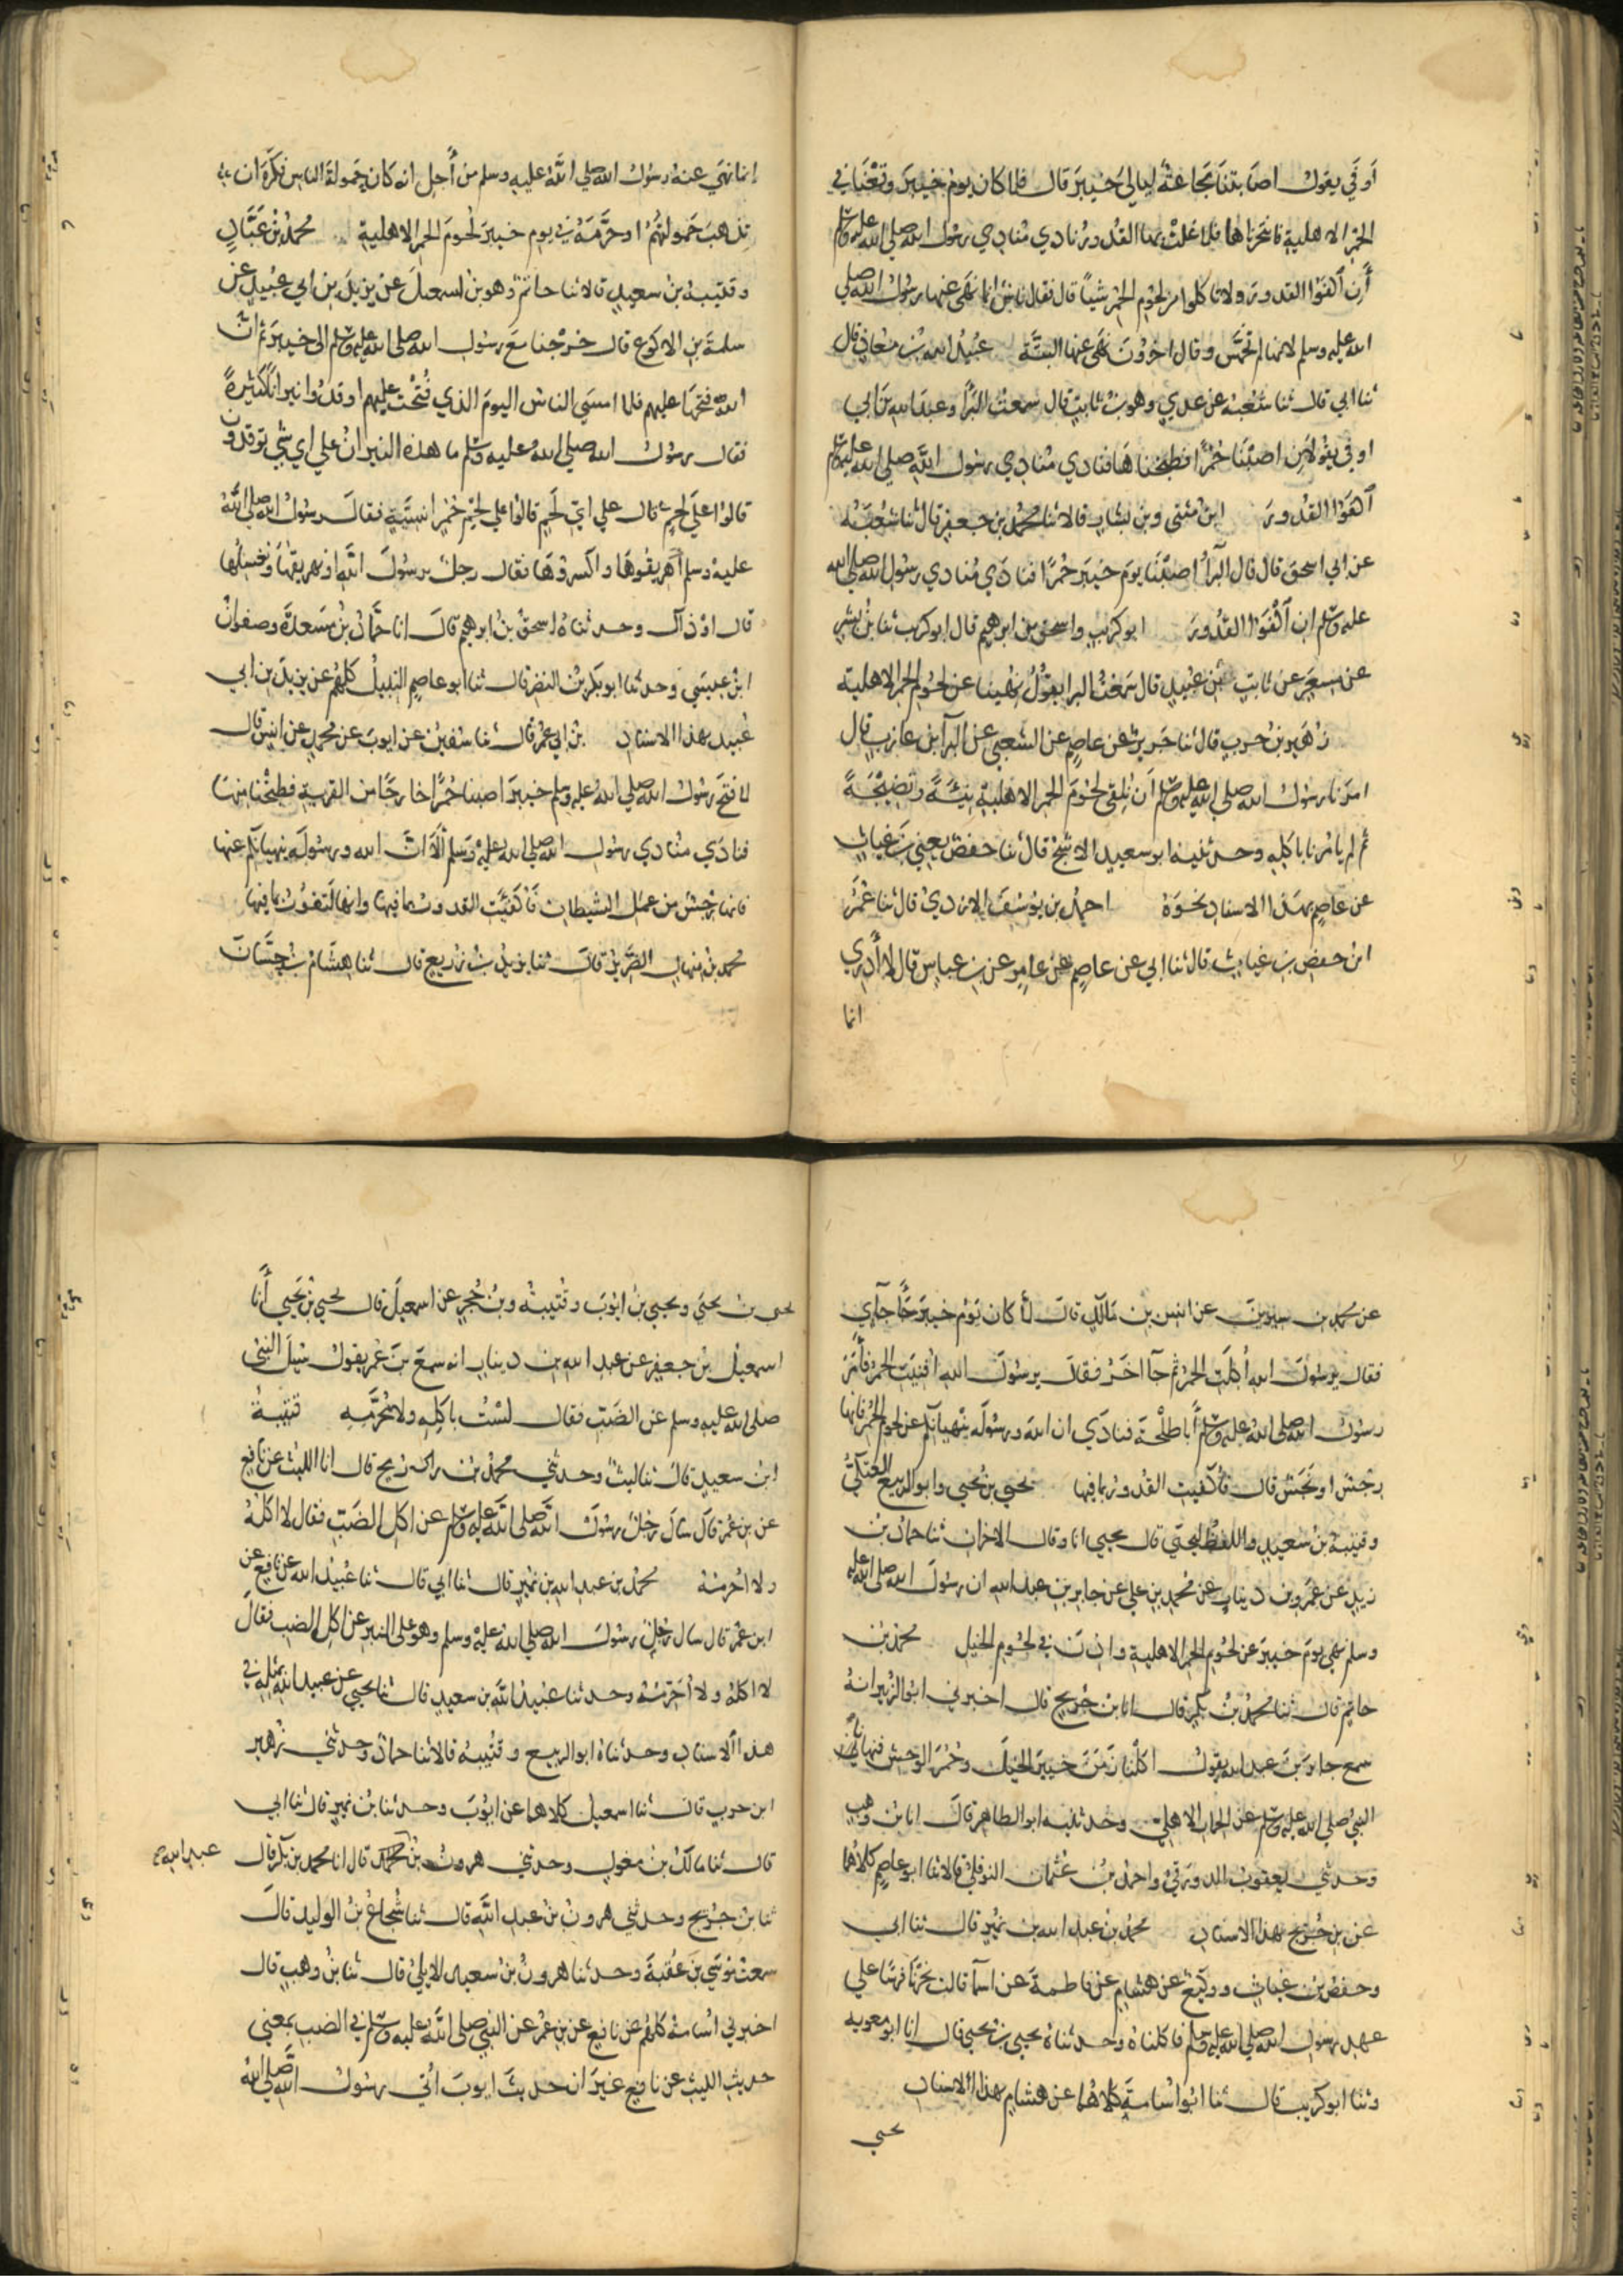 اوفي يقول اصابتنا مجاعة ليالي خيبر قال فلما كان يوم خيبر وقعنا في
الحمر الاهلية فانتحرناها فلما غلت بها القدور نادي منادي رسول الله صلى الله عليه وسلم
أن اكفؤا القدور ولا تاكلوا من لحوم الحمر شيا قال فقال ناس انما نهى عنها رسول الله صلي
الله عليه وسلم لانها لم تخمس وقال اخرون نهى عنها البتة عبيد الله بن معاذ قال
ثنا ابي قال ثنا شعبة عن عدي وهو بن ثابت قال سمعت البرأ وعبد الله بن ابي
اوفي يقولان اصبنا حمرا فطبخناها فنادي منادي رسول الله صلى الله عليه وسلم
اكفؤا القدور ابن مثنى وبن بشار قالا ثنا محمد بن جعفر قال ثنا شعبة
عن ابي اسحق قال قال البرأ اصبنا يوم خيبر حمرا فنادي منادي رسول الله صلى الله
عليه وسلم ان اكفؤا القدور ابو كريب واسحق بن ابرهيم قال ابو كريب ثنا بن بشر
عن مسعر عن ثابت بن عبيد قال سمعت البرا يقول نهينا عن لحوم الحمر الاهلية
زهير بن حرب قال ثنا جرير عن عاصم عن الشعبي عن البرآ بن عازب قال
امرنا رسول الله صلى الله عليه وسلم أن نلقي لحوم الحمر الاهلية نيئة ونضيجة
ثم لم يامرنا باكله وحدثنيه ابو سعيد الاشج قال ثنا حفص يعني بن غياث
عن عاصم بهذا الاسناد نحوه احمد بن يوسف الازدي قال ثنا عمر
ابن حفص بن غياث قال ثنا ابي عن عاصم عن عامر عن بن عباس قال لا أدري
انما
إنما نهي عنه رسول الله صلي الله عليه وسلم من أجل انه كان حمولة الناس فكره ان
تذهب حمولتهم او حرمه في يوم خيبر لحوم الحمر الاهلية محمد بن عباد
وقتيبة بن سعيد قالا ثنا حاتم وهو بن اسمعيل عن يزيد بن ابي عبيد عن
سلمة بن الاكوع قال خرجنا مع رسول الله صلى الله عليه وسلم الى خيبر ثم ان
الله فتحها عليهم فلما امسي الناس اليوم الذي فتحت عليهم اوقدوا نيرانا كثيرة
فقال رسول الله صلي الله عليه وسلم ما هذه النيران علي اي شي توقدون
قالوا علي لحم قال علي اي لحم قالوا علي لحم حمر انسية فقال رسول الله صلى الله
عليه وسلم أهريقوها واكسروها فقال رجل يرسول الله او نهريقها ونغسلها
قال او ذاك وحدثناه اسحق بن ابرهيم قال انا حماد بن مسعدة وصفوان
ابن عيسي وحدثنا ابو بكر بن النضر قال ثنا ابو عاصم النبيل كلهم عن يزيد بن ابي
عبيد بهذا الاسناد بن ابي عمر قال ثنا سفين عن ايوب عن محمد عن انس قال
لما فتح رسول الله صلي الله عليه وسلم خيبر اصبنا حمرا خارجا من القرية فطبخنا منها
فنادي منادي رسول الله صلى الله عليه وسلم ألا ان الله ورسوله ينهيانكم عنها
فانها رجس من عمل الشيطان فأكفئت القدور بما فيها وانها لتفور بما فيها
محمد بن منهال الضرير قال ثنا يزيد بن زريع قال ثنا هشام بن حسان
عن محمد بن سيرين عن انس بن مالك قال لما كان يوم خيبر جآ جآي
فقال يرسول الله أكلت الحمر ثم جآ اخر فقال يرسول الله افنيت الحمر فأمر
رسول الله صلى الله عليه وسلم أبا طلحة فنادي ان الله ورسوله ينهيانكم عن لحوم الحمر فانها
رجس او نجس قال فأكفيت القدور بما فيها يحيي بن يحيي وابو الربيع العتكي
وقتيبة بن سعيد واللفظ ليحيي قال يحيي انا وقال الاخران ثنا حماد بن
زيد عن عمرو بن دينار عن محمد بن علي عن جابر بن عبد الله ان رسول الله صلى الله عليه
وسلم نهي يوم خيبر عن لحوم الحمر الاهلية واذن في لحوم الخيل محمد بن
حاتم قال ثنا محمد بن بكر قال انا بن جريج قال اخبرني ابو الزبير انه
سمع جابر بن عبد الله يقول اكلنا زمن خيبر الخيل وحمر الوحش ونهانا
النبي صلي الله عليه وسلم عن الحمار الاهلي وحدثنيه ابو الطاهر قال انا بن وهب
وحدثني يعقوب الدورقي واحمد بن عثمان النوفلي قالا ثنا ابو عاصم كلاهما
عن بن جريج بهذا الاسناد محمد بن عبد الله بن نمير قال ثنا ابي
وحفص بن غياث ووكيع عن هشام عن فاطمة عن اسآ قالت نحرنا فرسا علي
عهد رسول الله صلى الله عليه وسلم فاكلناه وحدثناه يحيي بن يحيي قال انا ابو معويه
وثنا ابو كريب قال ثنا ابو اسامة كلاهما عن هشام بهذا الاسناد
يحيي
يحيى بن يحيى ويحيي بن ايوب وقتيبة وبن حجر عن اسمعيل قال يحيي بن يحيي أنا
اسمعيل بن جعفر عن عبد الله بن دينار انه سمع بن عمر يقول سيل النبي
صلى الله عليه وسلم عن الضب فقال لست باكله ولا محرمه قتيبة
ابن سعيد قال ثنا ليث وحدثني محمد بن رمح قال انا الليث عن نافع
عن بن عمر قال سال رجل رسول الله صلى الله عليه وسلم عن اكل الضب فقال لا اكله
ولا احرمه محمد بن عبد الله بن نمير قال ثنا ابي قال ثنا عبيد الله عن نافع عن
ابن عمر قال سال رجل رسول الله صلي الله عليه وسلم وهو على المنبر عن اكل الضب فقال
لا اكله ولا أحرمه وحدثنا عبيد الله بن سعيد قال ثنا يحيي عن عبيد الله بمثله في
هذا الاسناد وحدثناه ابو الربيع وقتيبة قالا ثنا حماد وحدثني زهير
ابن حرب قال ثنا اسمعيل كلاهما عن ايوب وحدثنا بن نمير قال ثنا ابي
قال ثنا مالك بن مغول وحدثني هرون بن محمد قال انا محمد بن بكر قال
عبد الله
ثنا بن جريج وحدثني هرون بن عبد الله قال ثنا شجاع بن الوليد قال
سمعت موسي بن عقبة وحدثنا هرون بن سعيد الايلي قال ثنا بن وهب قال
اخبرني اسامة كلهم عن نافع عن بن عمر عن النبي صلى الله عليه وسلم في الضب بمعني
حديث الليث عن نافع غير ان حديث ايوب أتي رسول الله صلى الله